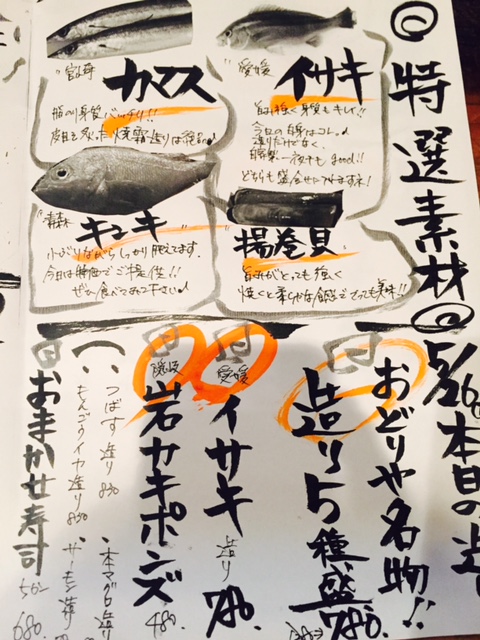 特選素材
愛媛
イサキ
旨み強く身質もキレイ!!
今日の白身はコレ♪
造りだけでなく、
自家製一夜干もgood!!
どちらも盛合せに入ります木!
宮崎
カマス
脂のり身質バッチリ!!
揚巻貝
旨みがとっても強く
焼くと柔らかな食感でとっても美味!!
青森
キチヌキ
小ぶりながらしっかり肥えてます。
今日は特価でご提供!!
ぜひ食べてみて下さい♪
5/26 本日の造
おどりや名物!!
造り5種盛
780.
愛媛
イサキ
造り
780.
隠岐
岩カキポンズ
480.
つばす造り 830
本マグロ造り
もんごうイカ造り 830
サーモン造り
おまかせ寿司
680.